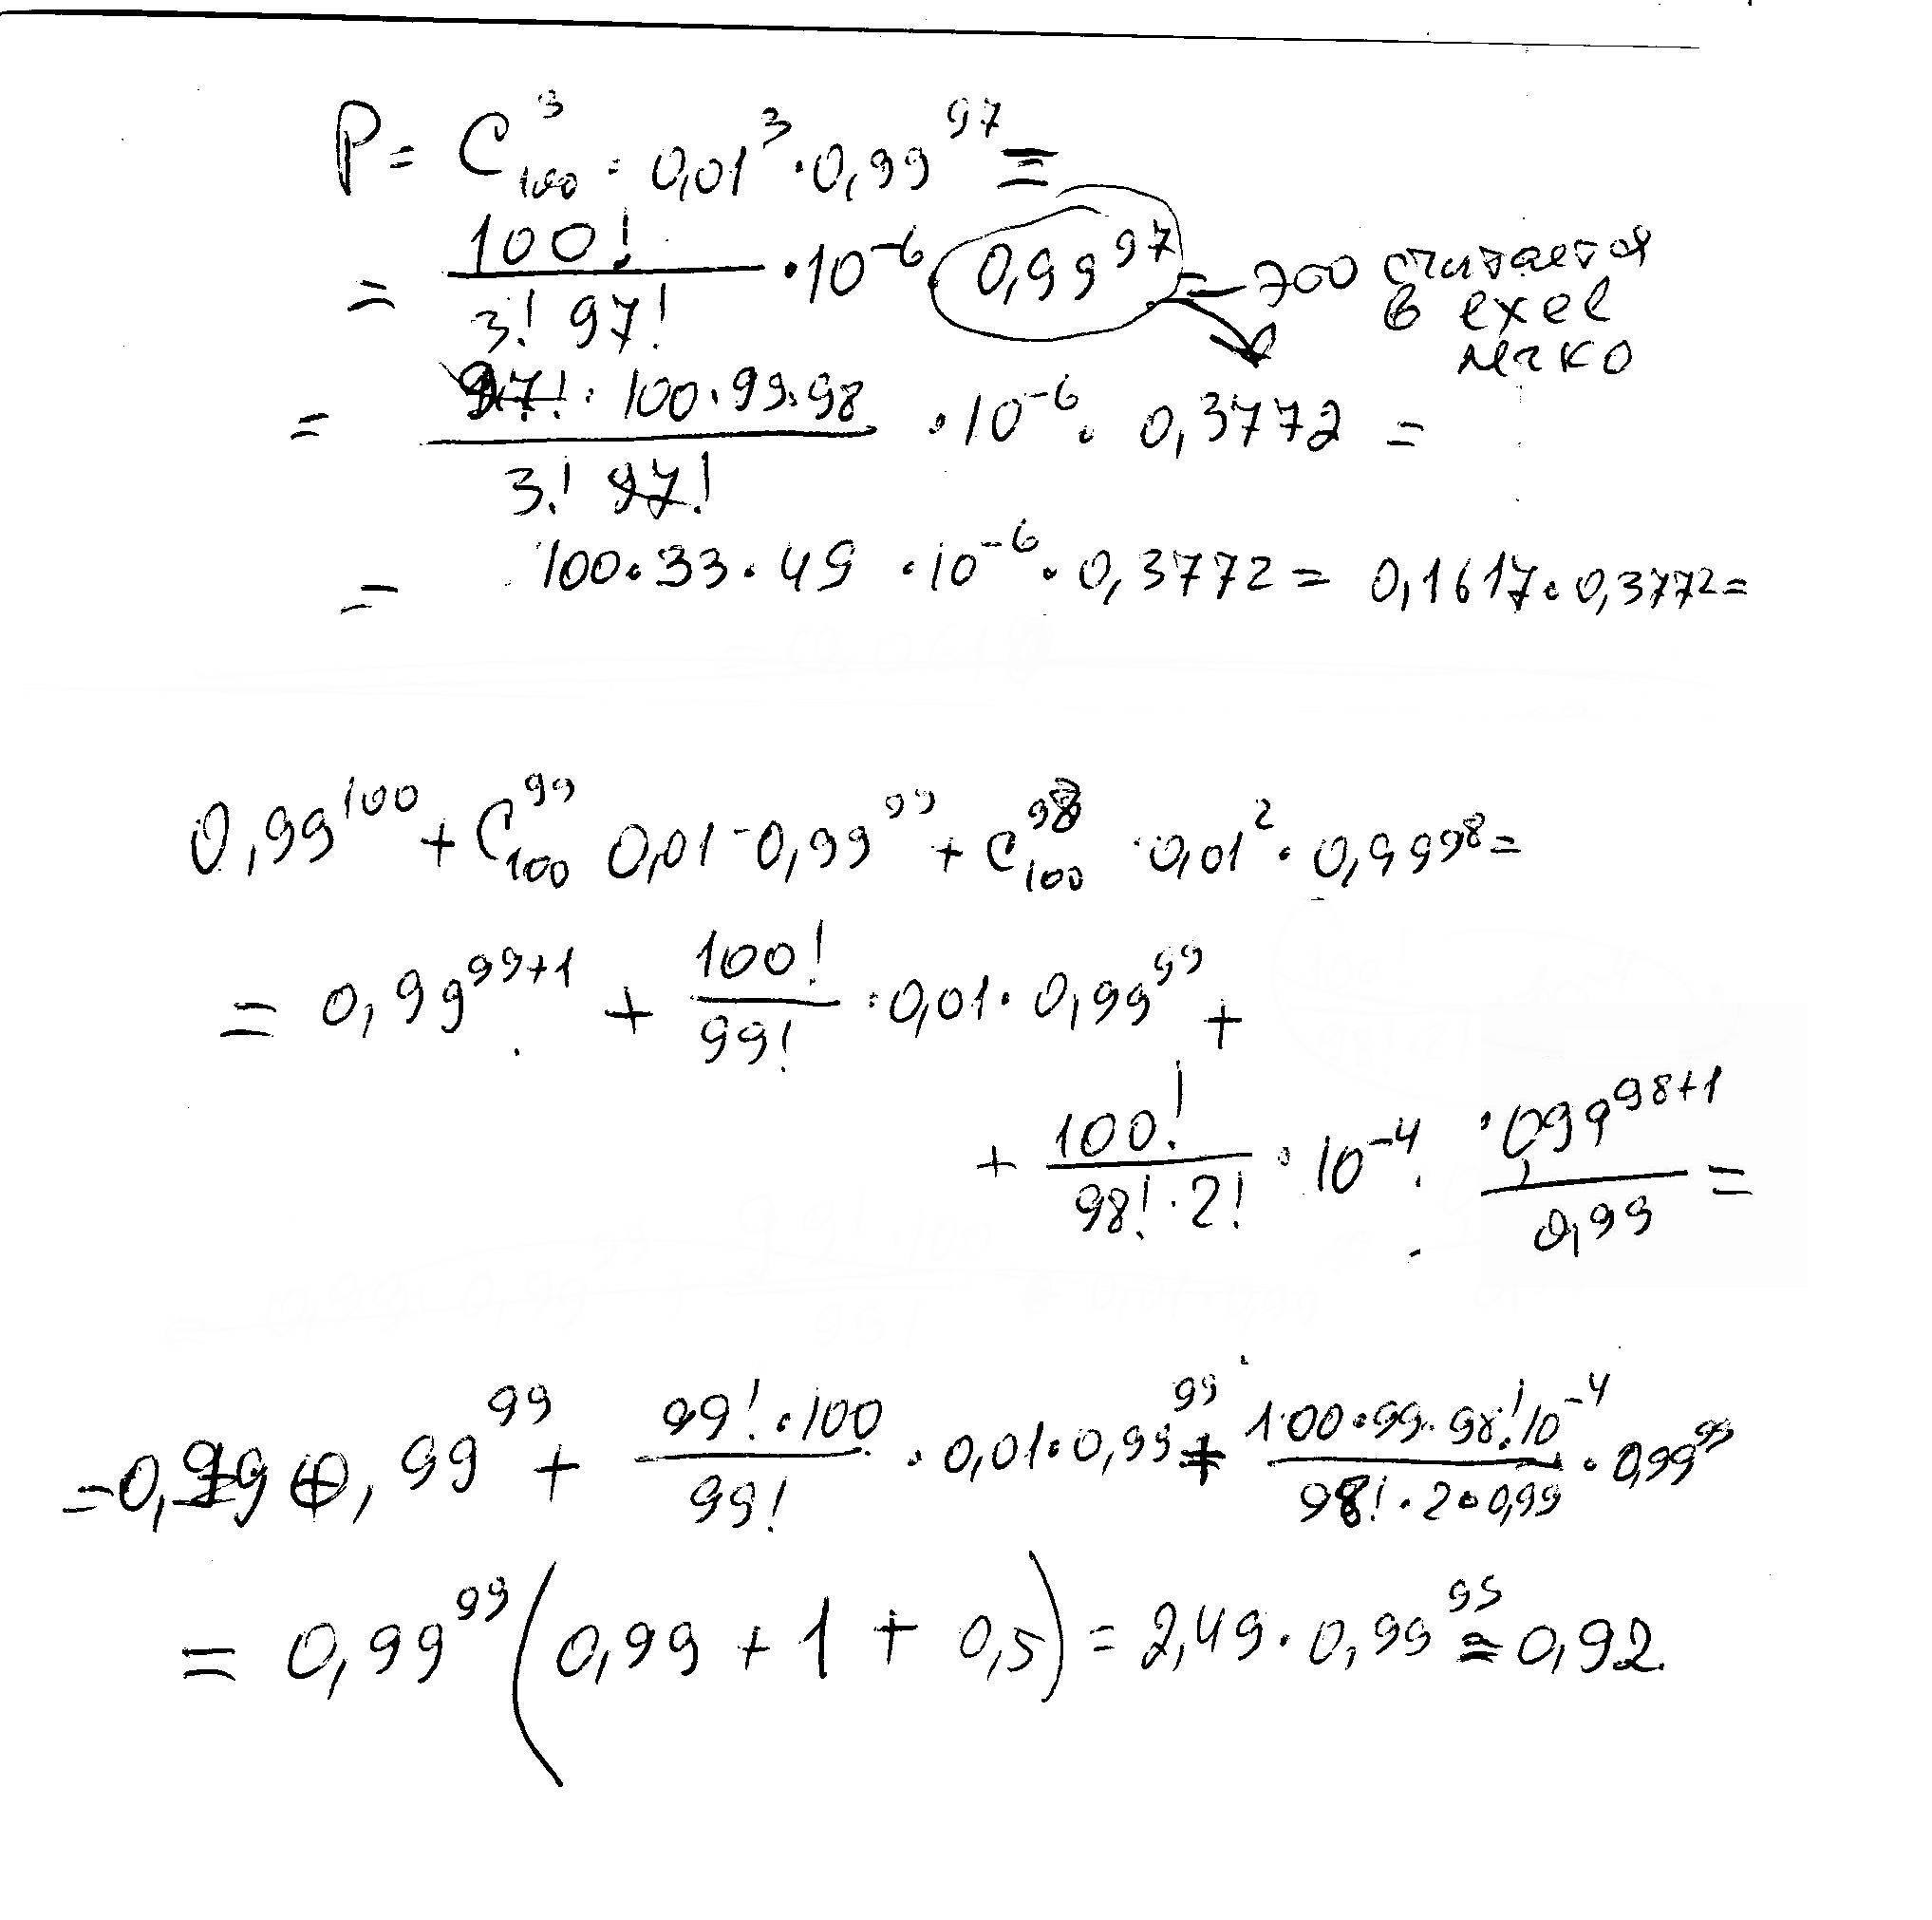 P = C₁₀₀³ · 0,01³ · 0,99⁹⁷ =
= 100! / 3! 97! · 10⁻⁶ · 0,99⁹⁷ = это считается
в exel
легко
= 97! · 100 · 99 · 98 / 3! 97! · 10⁻⁶ · 0,3772 =
= 100 · 33 · 49 · 10⁻⁶ · 0,3772 = 0,1617 · 0,3772 =
0,99¹⁰⁰ + C₁₀₀⁹⁹ 0,01 · 0,99⁹⁹ + C₁₀₀⁹⁸ · 0,01² · 0,99⁹⁸ =
= 0,99⁹⁹⁺¹ + 100! / 99! · 0,01 · 0,99⁹⁹ +
+ 100! / 98! · 2! · 10⁻⁴ · 0,99⁹⁸⁺¹ / 0,99 =
= 0,99 · 0,99⁹⁹ + 99! · 100 / 99! · 0,01 · 0,99⁹⁹ + 100 · 99 · 98! 10⁻⁴ / 98! · 2 · 0,99 · 0,99⁹⁹
= 0,99⁹⁹ (0,99 + 1 + 0,5) = 2,49 · 0,99⁹⁹ = 0,92.